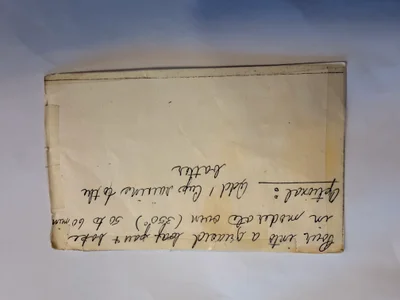 Pour into a greased loaf pan & bake
in moderate oven (350°) 50 to 60 min
Optional: Add 1 Cup raisins to the
batter